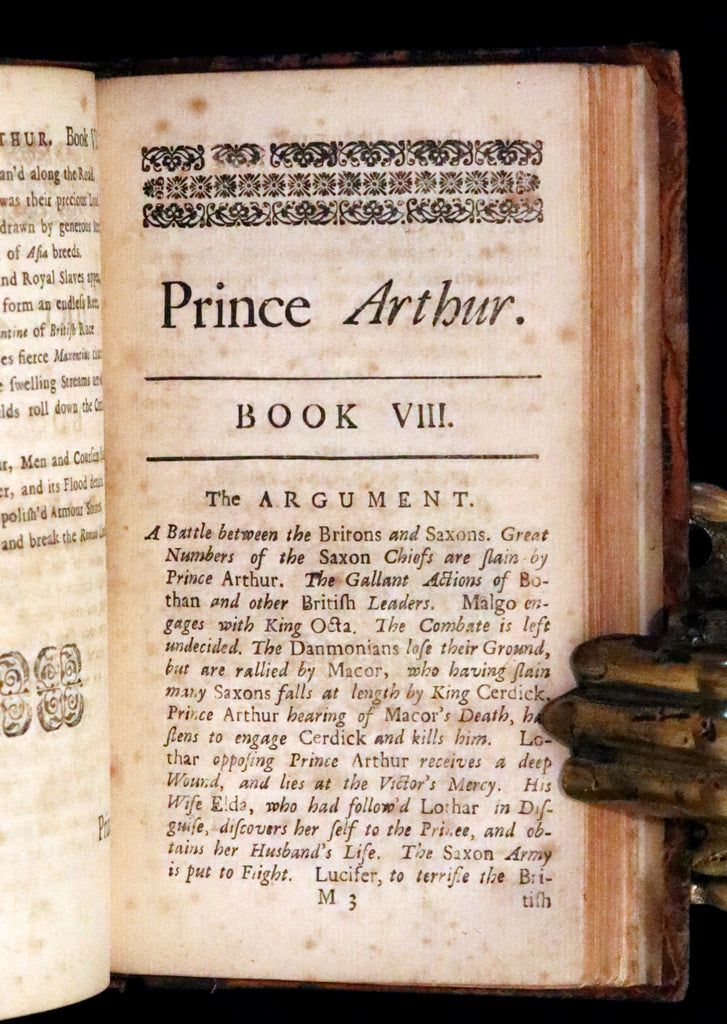 THUR. Book V
an'd along the Road,
was their precious
drawn by generous
of Aſia breeds.
nd Royal Slaves
form an endleſs
ntine of Britiſh Race
es fierce Maxentius
e ſwelling Streams and
lds roll down the
r, Men and
er, and its Flood
poliſh'd Armour
and break the Roman
Prince Arthur.
BOOK VIII.
The ARGUMENT.
A Battle between the Britons and Saxons. Great
Numbers of the Saxon Chiefs are ſlain by
Prince Arthur. The Gallant Actions of Bo-
than and other Britiſh Leaders. Malgo en-
gages with King Octa. The Combate is left
undecided. The Danmonians loſe their Ground,
but are rallied by Macor, who having ſlain
many Saxons falls at length by King Cerdick.
Prince Arthur hearing of Macor's Death, ha
ſtens to engage Cerdick and kills him. Lo-
thar oppoſing Prince Arthur receives a deep
Wound, and lies at the Victor's Mercy. His
Wife Elda, who had follow'd Lothar in Diſ-
guiſe, diſcovers her ſelf to the Prince, and ob-
tains her Husband's Life. The Saxon Army
is put to Flight. Lucifer, to terrifie the Bri-
M 3 tiſh